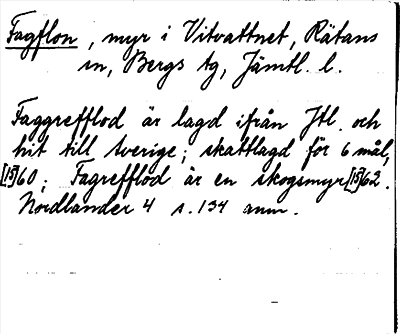 Fagflon, myr i Vitvattnet, Rätans
sn, Bergs tg, Jämtl. l.
Faggrefflod är lagd ifrån Jtl. och
hit till Sverige; skattlagd för 6 mål,
[15]60; Fagrefflod är en skogsmyr [15]62.
Nordlander 4 s. 134 anm.